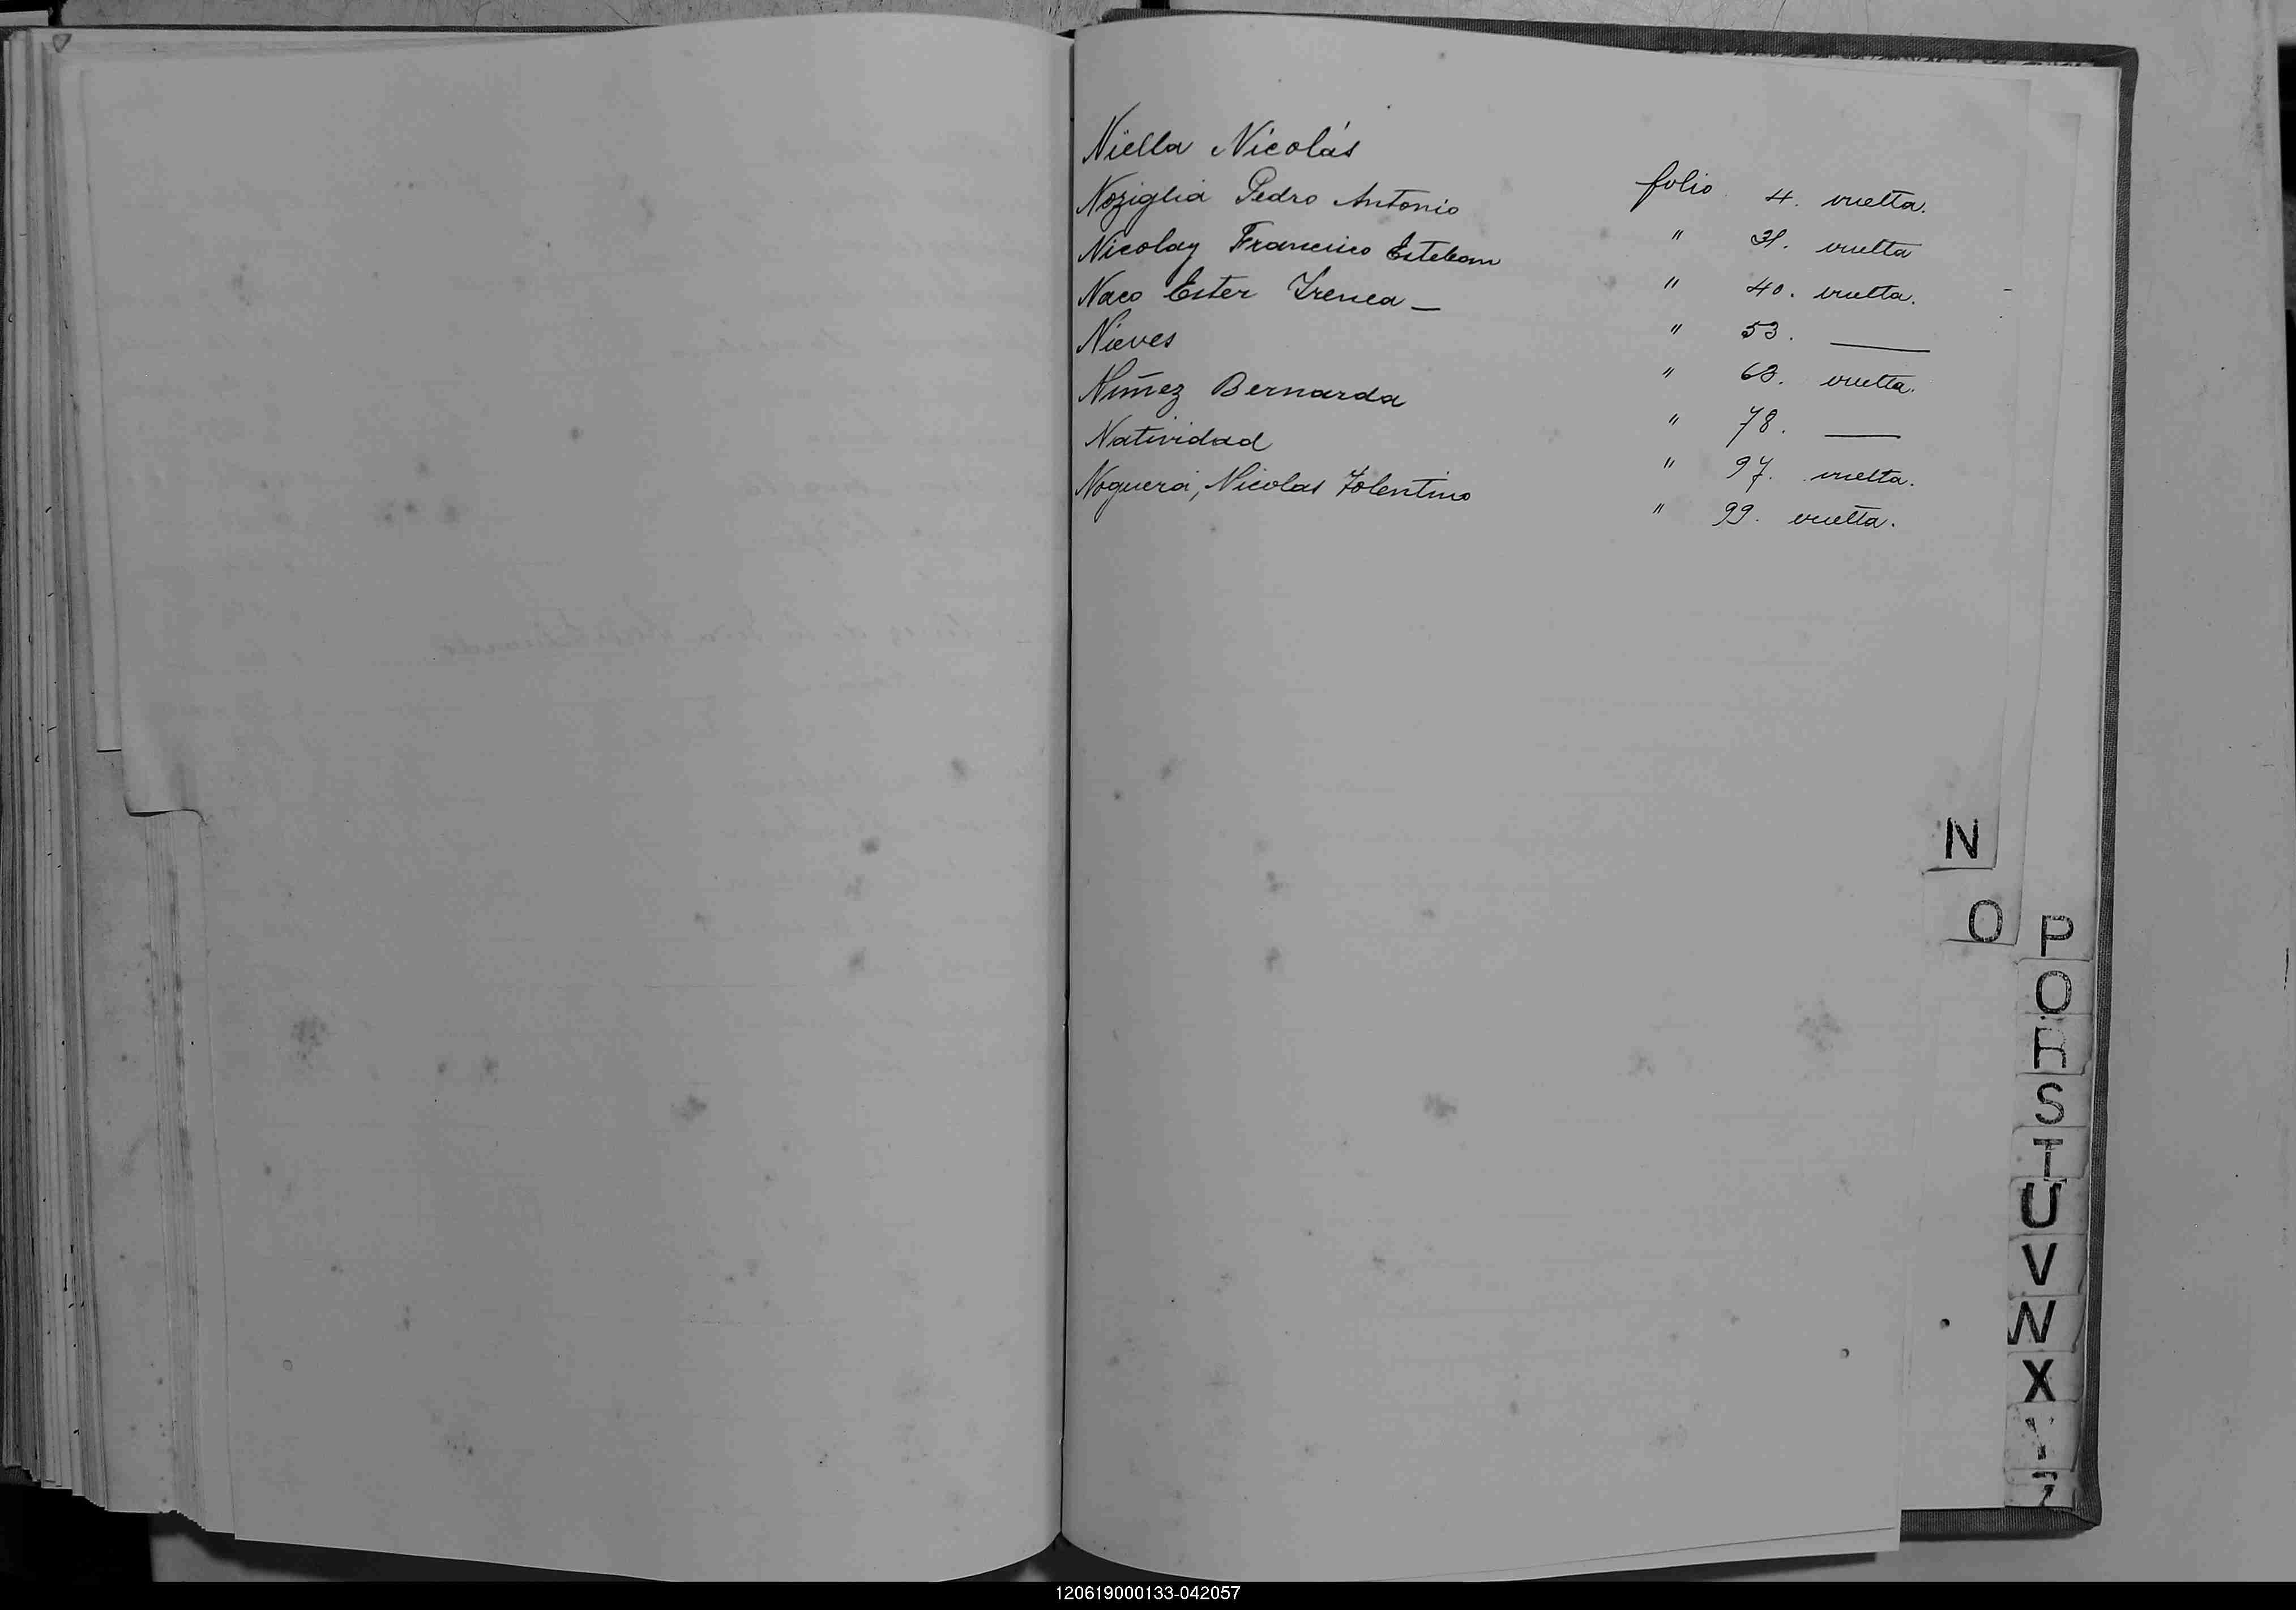 Niella Nicolás folio 4. vuelta.
Noziglia Pedro Antonio " 31. vuelta
Nicolay Francisco Esteban " 40. vuelta.
Naco Ester Irenea — " 53. ——
Nieves " 63. vuelta.
Nuñez Bernarda " 78. ——
Natividad " 97. vuelta.
Noguera, Nicolas Tolentino " 99. vuelta.
N
O
P
Q
R
S
T
U
V
W
X
Y
Z
120619000133-042057